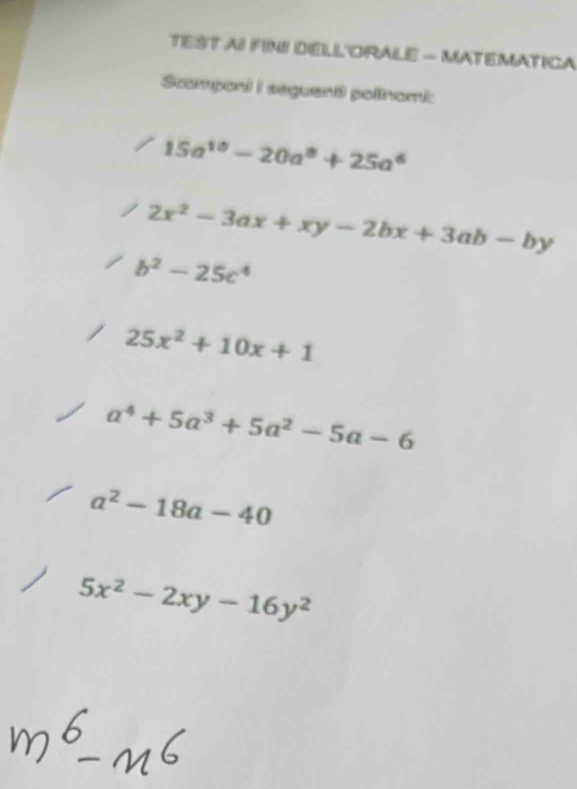 TEST AI FINI DELL'ORALE – MATEMATICA
Scomponi i seguenti polinomi:
15a¹⁰ − 20a⁸ + 25a⁶
2x² − 3ax + xy − 2bx + 3ab − by
b² − 25c⁴
25x² + 10x + 1
a⁴ + 5a³ + 5a² − 5a − 6
a² − 18a − 40
5x² − 2xy − 16y²
m⁶ − n⁶